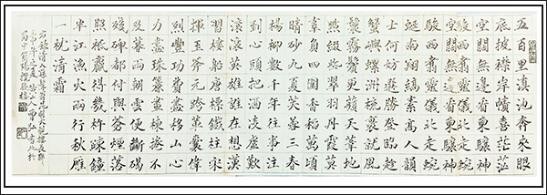 五百里滇池奔來眼
底披襟岸幘喜茫茫
空闊無邊看東驤神
駿西翥靈儀北走蜿
蜒南翔縞素高人韻
士何妨選勝登臨趁
蟹嶼螺洲梳裹就風
鬟霧鬢更蘋天葦地
點綴些翠羽丹霞莫
孤負四圍香稻萬頃
晴沙九夏芙蓉三春
楊柳數千年往事注
到心頭把酒凌虛歎
滾滾英雄誰在想漢
習樓船唐標鐵柱宋
揮玉斧元跨革囊偉
烈豐功費盡移山心
力盡珠簾畫棟卷不
及暮雨朝雲便斷碣
殘碑都付與蒼煙落
照只贏得幾杵疏鐘
半江漁火兩行秋雁
一枕清霜
右錄清人孫髯翁昆明大觀樓長聯